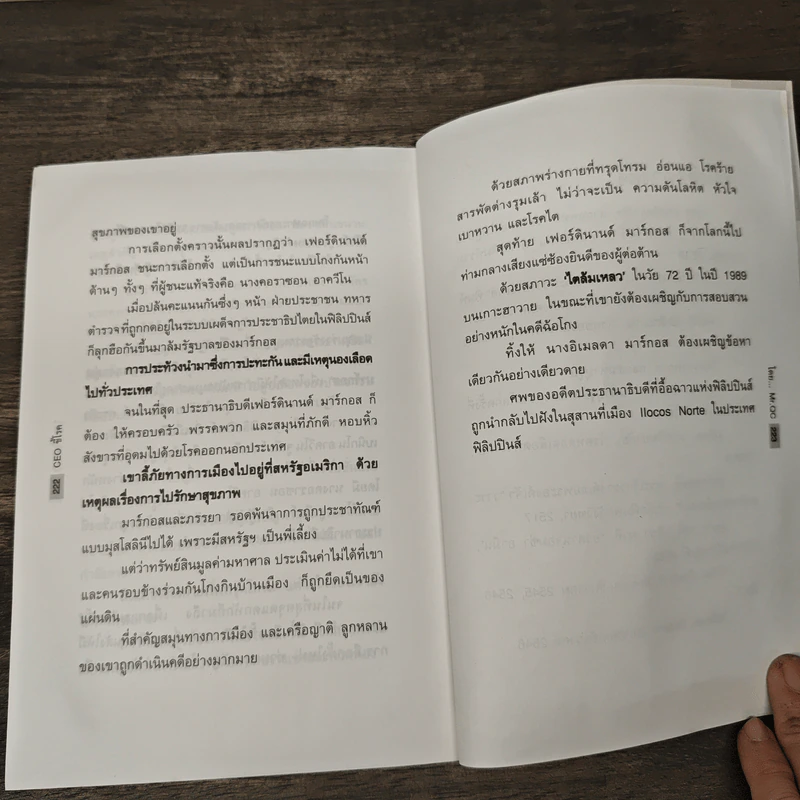 สุขภาพของเขาอยู่
การเลือกตั้งคราวนั้นผลปรากฏว่า เฟอร์ดินานด์
มาร์กอส ชนะการเลือกตั้ง แต่เป็นการชนะแบบโกงกันหน้า
ด้านๆ ทั้งๆ ที่ผู้ชนะแท้จริงคือ นางคอราซอน อาควีโน
เมื่อปล้นคะแนนกันซึ่งๆ หน้า ฝ่ายประชาชน ทหาร
ตำรวจที่ถูกกดอยู่ในระบบเผด็จการประชาธิปไตยในฟิลิปปินส์
ก็ลุกฮือกันขึ้นมาล้มรัฐบาลของมาร์กอส
การประท้วงนำมาซึ่งการปะทะกัน และมีเหตุนองเลือด
ไปทั่วประเทศ
จนในที่สุด ประธานาธิบดีเฟอร์ดินานด์ มาร์กอส ก็
ต้อง ให้ครอบครัว พรรคพวก และสมุนที่ภักดี หอบหิ้ว
สังขารที่อุดมไปด้วยโรคออกนอกประเทศ
เขาลี้ภัยทางการเมืองไปอยู่ที่สหรัฐอเมริกา ด้วย
เหตุผลเรื่องการไปรักษาสุขภาพ
มาร์กอสและภรรยา รอดพ้นจากการถูกประชาทัณฑ์
แบบมุสโสลินีไปได้ เพราะมีสหรัฐฯ เป็นพี่เลี้ยง
แต่ว่าทรัพย์สินมูลค่ามหาศาล ประเมินค่าไม่ได้ที่เขา
และคนรอบข้างร่วมกันโกงกินบ้านเมือง ก็ถูกยึดเป็นของ
แผ่นดิน
ที่สำคัญสมุนทางการเมือง และเครือญาติ ลูกหลาน
ของเขาถูกดำเนินคดีอย่างมากมาย
222 CEO ขี้โรค
ด้วยสภาพร่างกายที่ทรุดโทรม อ่อนแอ โรคร้าย
สารพัดต่างรุมเล้า ไม่ว่าจะเป็น ความดันโลหิต หัวใจ
เบาหวาน และโรคไต
สุดท้าย เฟอร์ดินานด์ มาร์กอส ก็จากโลกนี้ไป
ท่ามกลางเสียงแซ่ซ้องยินดีของผู้ต่อต้าน
ด้วยสภาวะ 'ไตล้มเหลว' ในวัย 72 ปี ในปี 1989
บนเกาะฮาวาย ในขณะที่เขายังต้องเผชิญกับการสอบสวน
อย่างหนักในคดีฉ้อโกง
ทิ้งให้ นางอิเมลดา มาร์กอส ต้องเผชิญข้อหา
เดียวกันอย่างเดียวดาย
ศพของอดีตประธานาธิบดีที่อื้อฉาวแห่งฟิลิปปินส์
ถูกนำกลับไปฝังในสุสานที่เมือง Ilocos Norte ในประเทศ
ฟิลิปปินส์
โดย... Mr.OIC 223